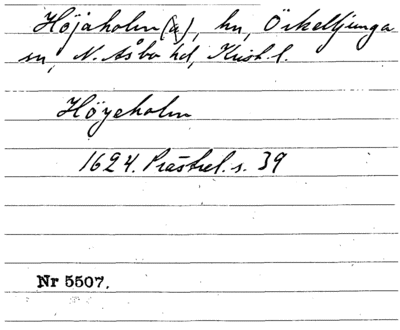 Höjaholm(a), hn, Örkelljunga
sn, N. Åsbo hd, Krist. l.
Höyeholm
1624. Prästrel. s. 39
Nr 5507.